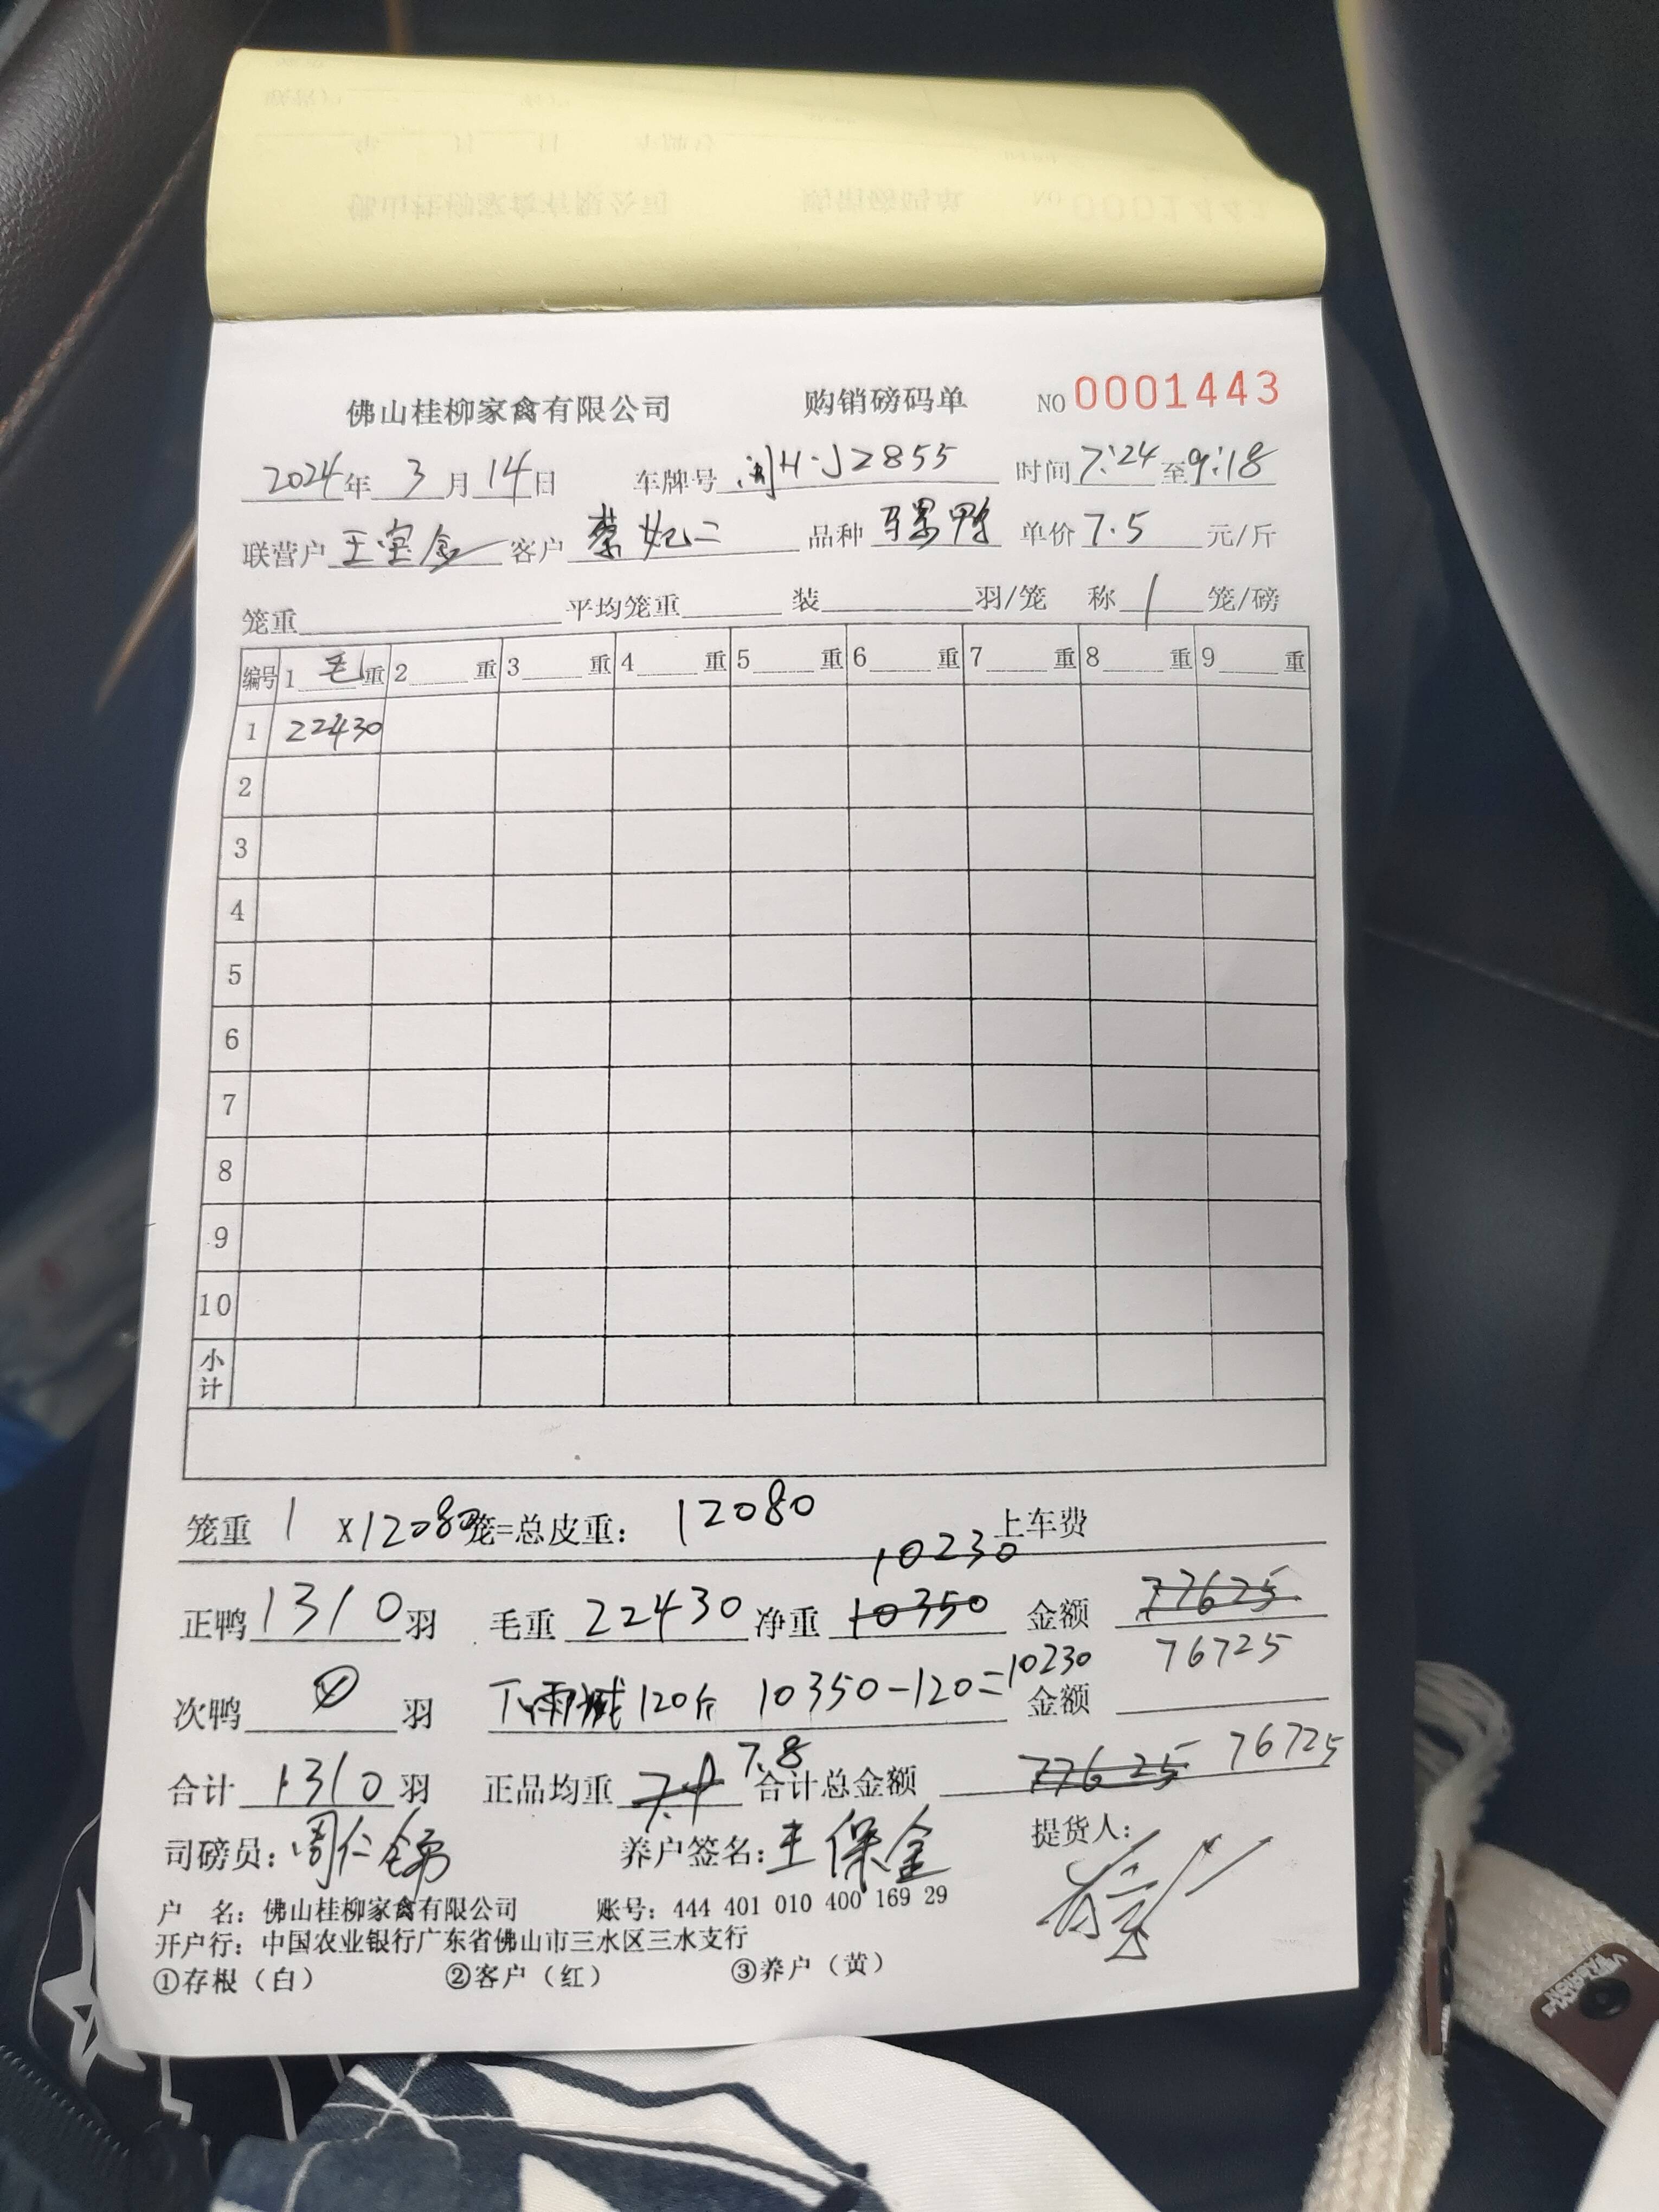 佛山桂柳家禽有限公司 购销磅码单 NO 0001443
2024年 3月 14日 车牌号 闽H·J2855 时间 7:24 至 9:18
联营户 王宝金 客户 蔡妃二 品种 骡鸭 单价 7.5 元/斤
笼重 平均笼重 装 羽/笼 称 1 笼/磅
编号 1 毛重 2 重 3 重 4 重 5 重 6 重 7 重 8 重 9 重
1 22430
2
3
4
5
6
7
8
9
10
小计
笼重 1 X 12080 笼=总皮重: 12080 上车费
10230
正鸭 1310 羽 毛重 22430 净重 10350 金额 77625
76725
次鸭 0 羽 下雨减120斤 10350-120=10230 金额
7.8
合计 1310 羽 正品均重 7.9 合计总金额 77625 76725
司磅员: 周仁 养户签名: 王保金 提货人:
户 名: 佛山桂柳家禽有限公司 账号: 444 401 010 400 169 29
开户行: 中国农业银行广东省佛山市三水区三水支行
①存根（白） ②客户（红） ③养户（黄）